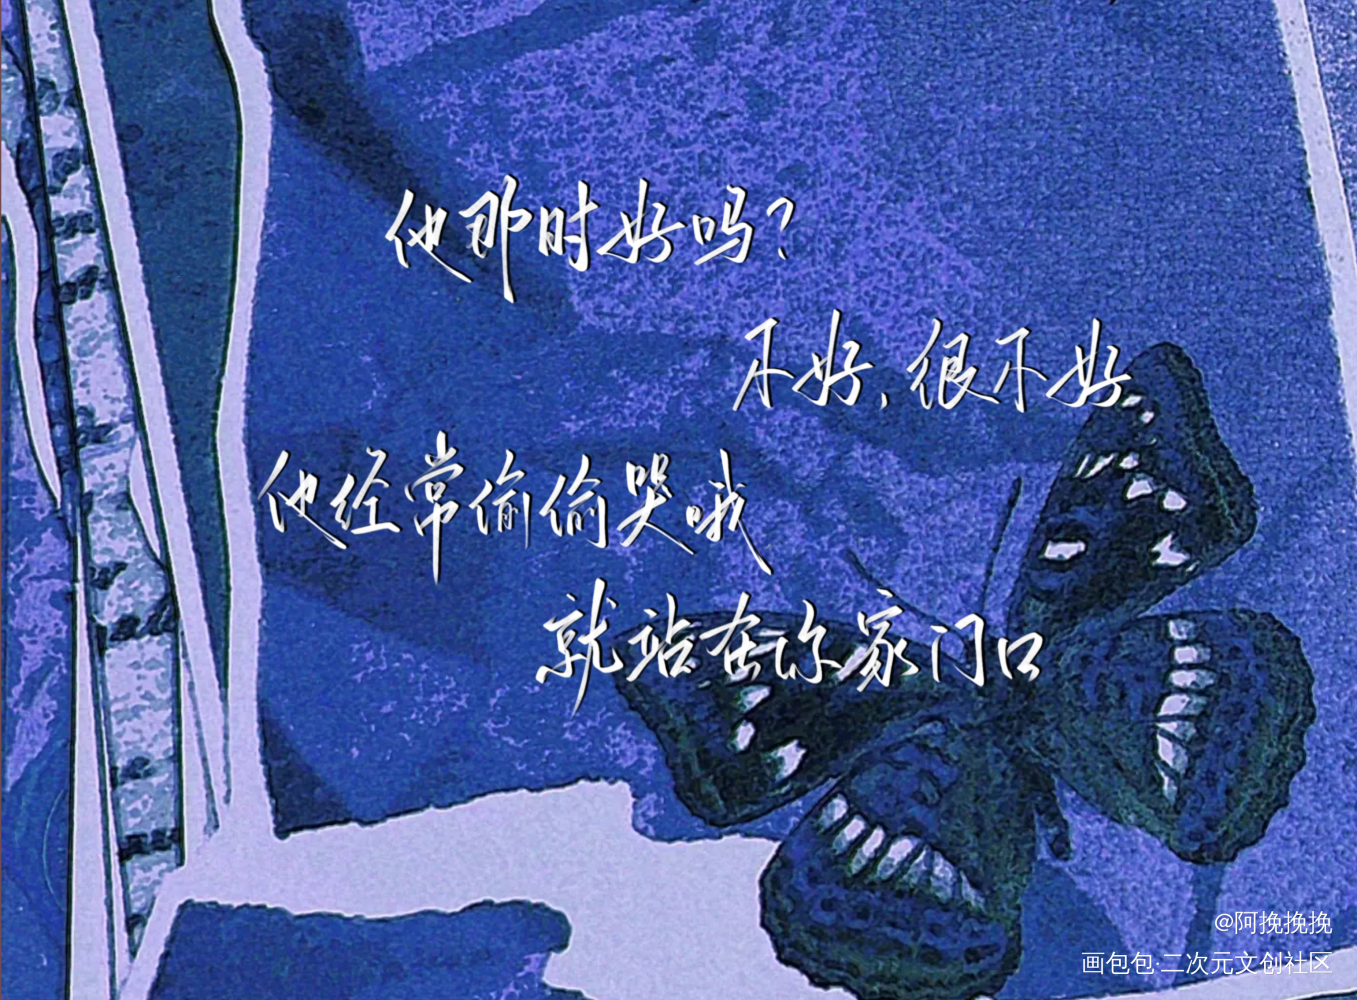 他那时好吗？
不好，很不好
他经常偷偷哭哦
就站在你家门口
@阿挽挽挽
画包包·二次元文创社区